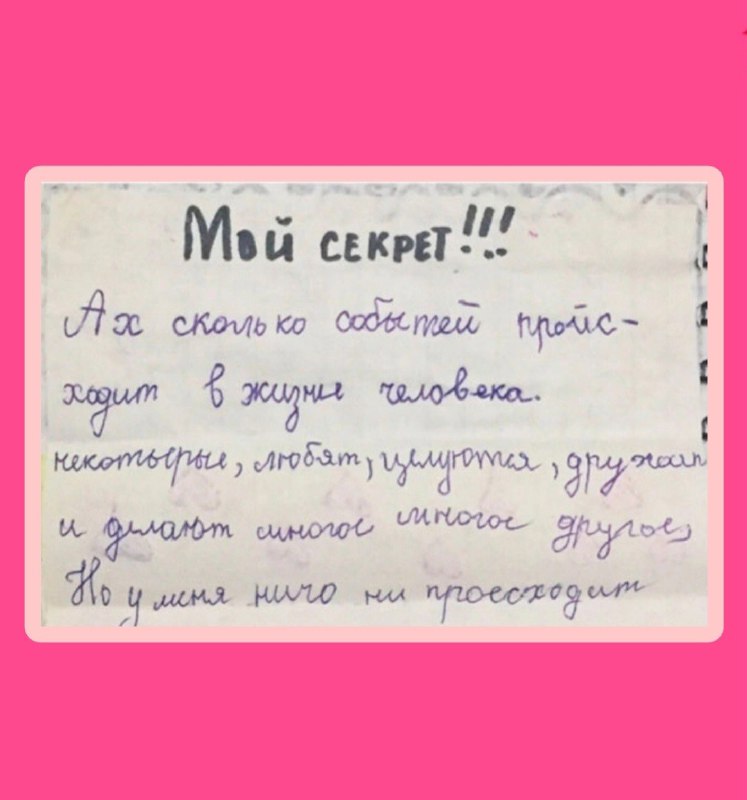 Мой СЕКРЕТ!!!
Ах сколько событей пройис-
ходит в жизни человека.
некотырые, любят, целуются, дружат
и делают многое многое другое,
Но у меня ничо ни проесходит